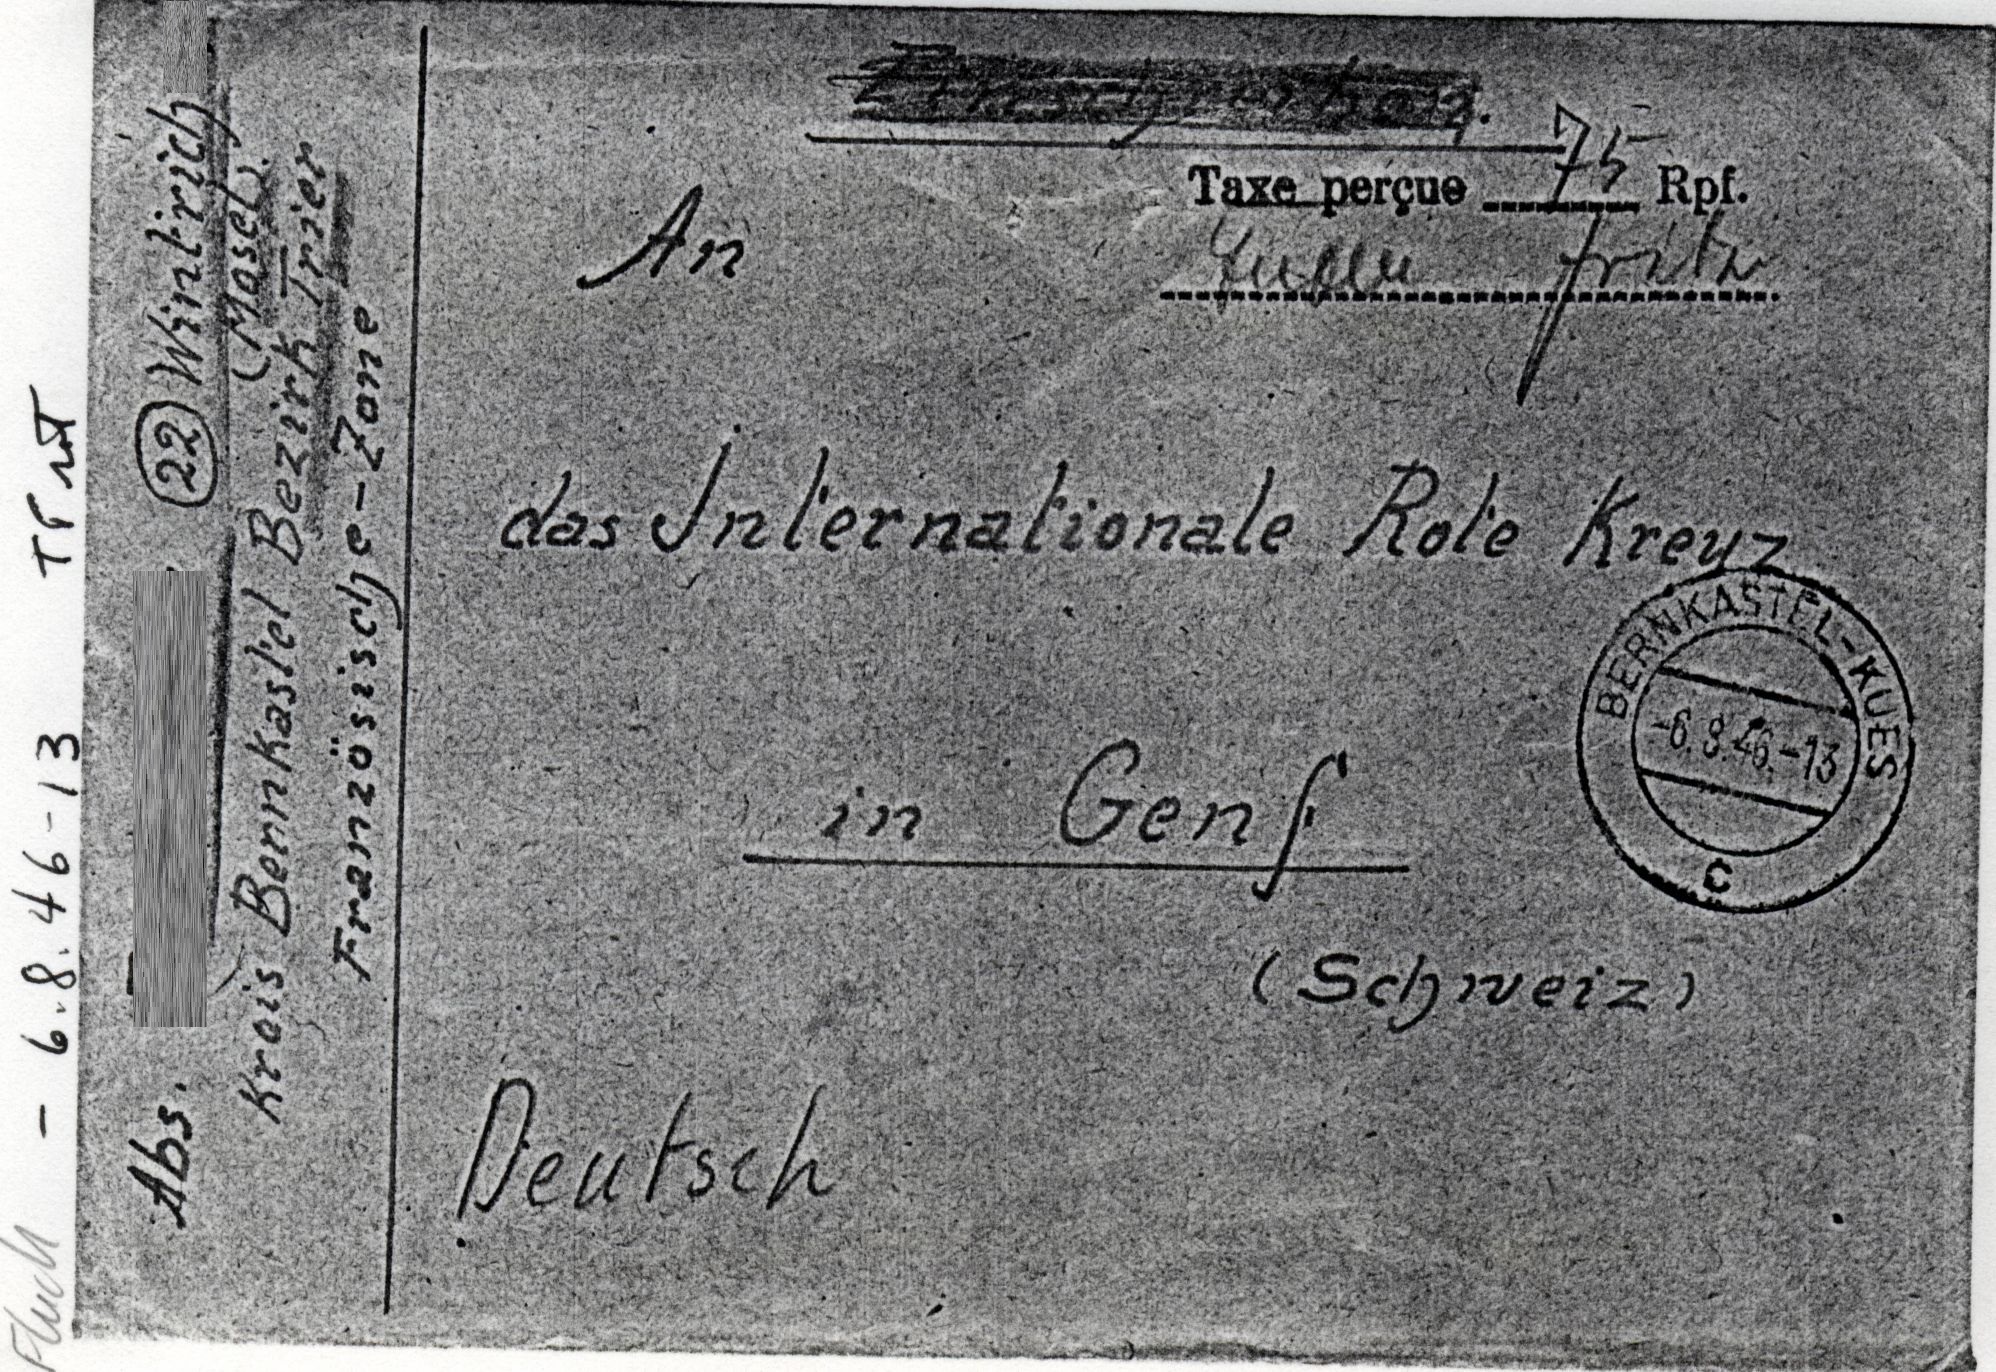 Abs.
(22) Wintrich
(Mosel)
Kreis Bernkastel Bezirk Trier
Französische-Zone
75
Taxe perçue Rpf.
Fritz
An
das Internationale Rote Kreuz
in Genf
(Schweiz)
Deutsch
BERNKASTEL-KUES
-6.8.46.-13
c
- 6.8.46-13